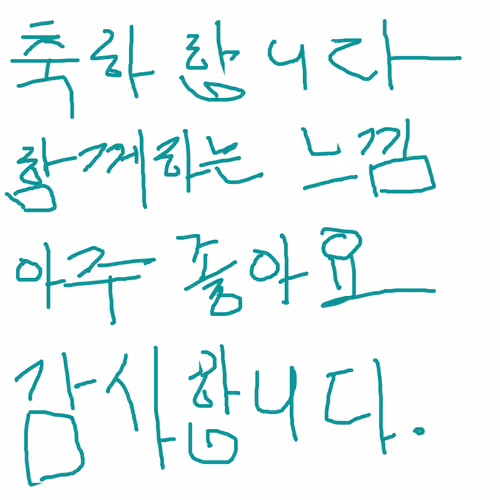 축하합니다
함께하는 느낌
아주 좋아요
감사합니다.